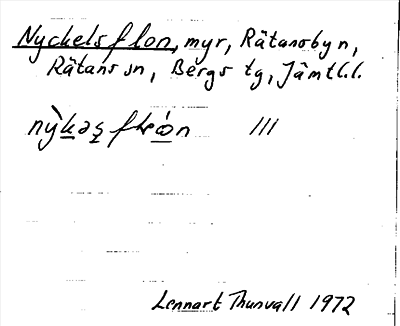 Nyckelsflon, myr, Rätansbyn,
Rätans sn, Bergs tg, Jämtl.l.
III
Lennart Thunvall 1972